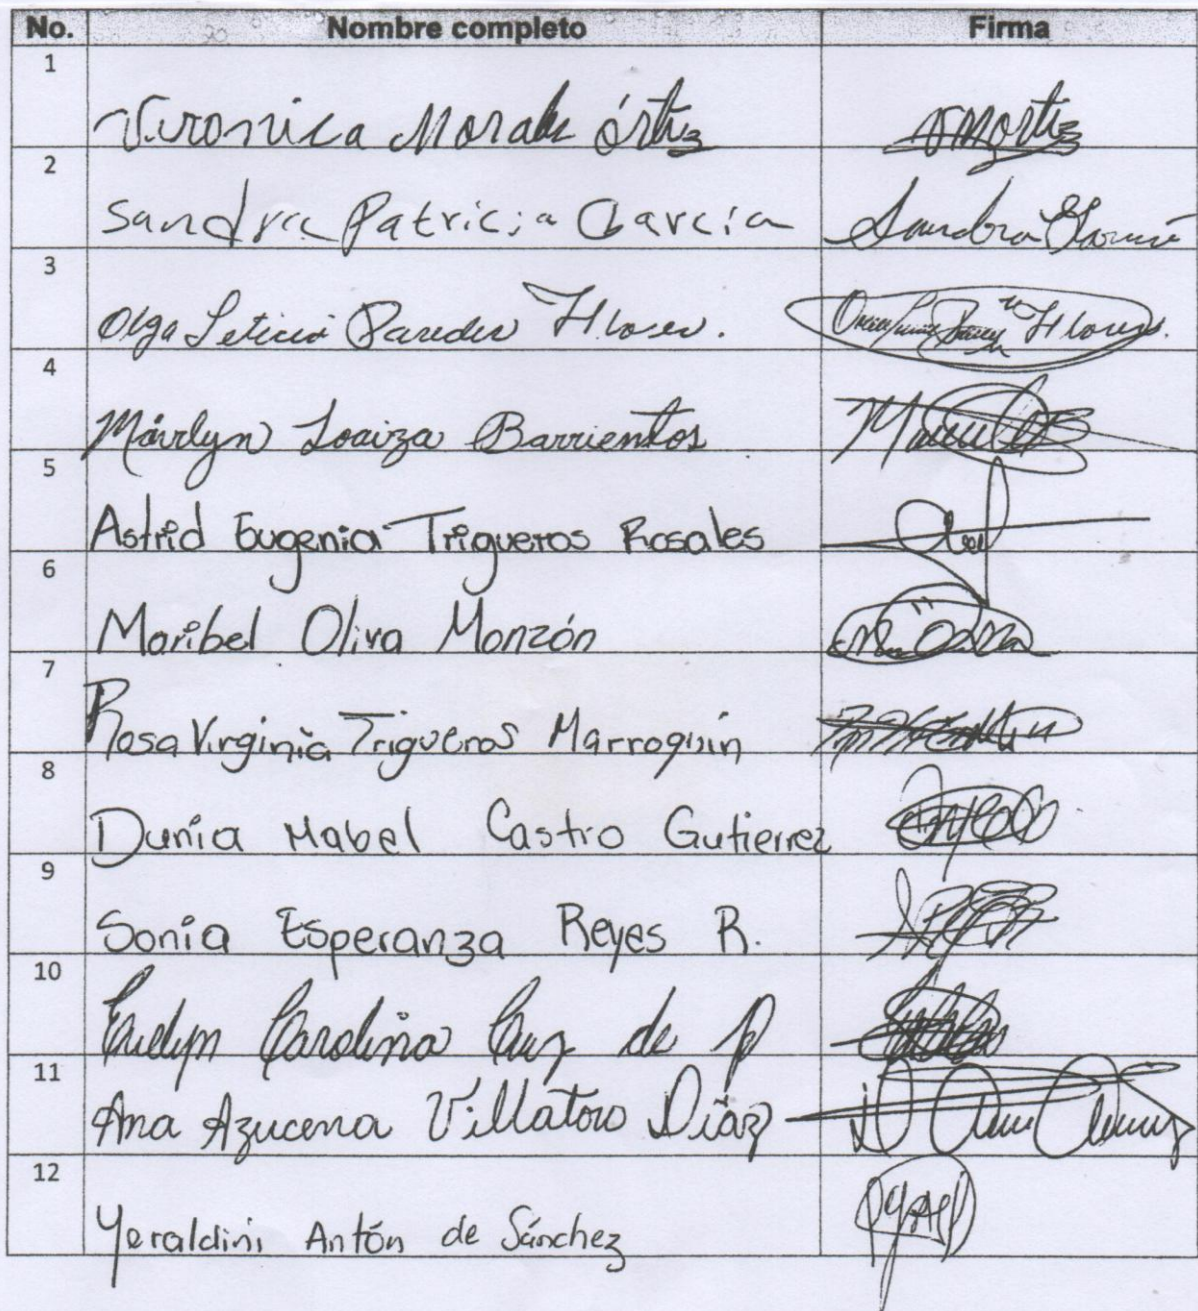 No. Nombre completo Firma
1
Veronica Morales órtiz vmortiz
2
Sandra Patricia García Sandra García
3
Olga Leticia Paredes Flores. Flores.
4
Márilyn Loaiza Barrientos
5
Astrid Eugenia Trigueros Rosales
6
Maribel Oliva Monzón
7
Rosa Virginia Trigueros Marroquín
8
Dunia Mabel Castro Gutierrez
9
Sonia Esperanza Reyes R.
10
Evelyn Carolina Cruz de P
11
Ana Azucena Villatoro Díaz
12
Yeraldini Antón de Sánchez